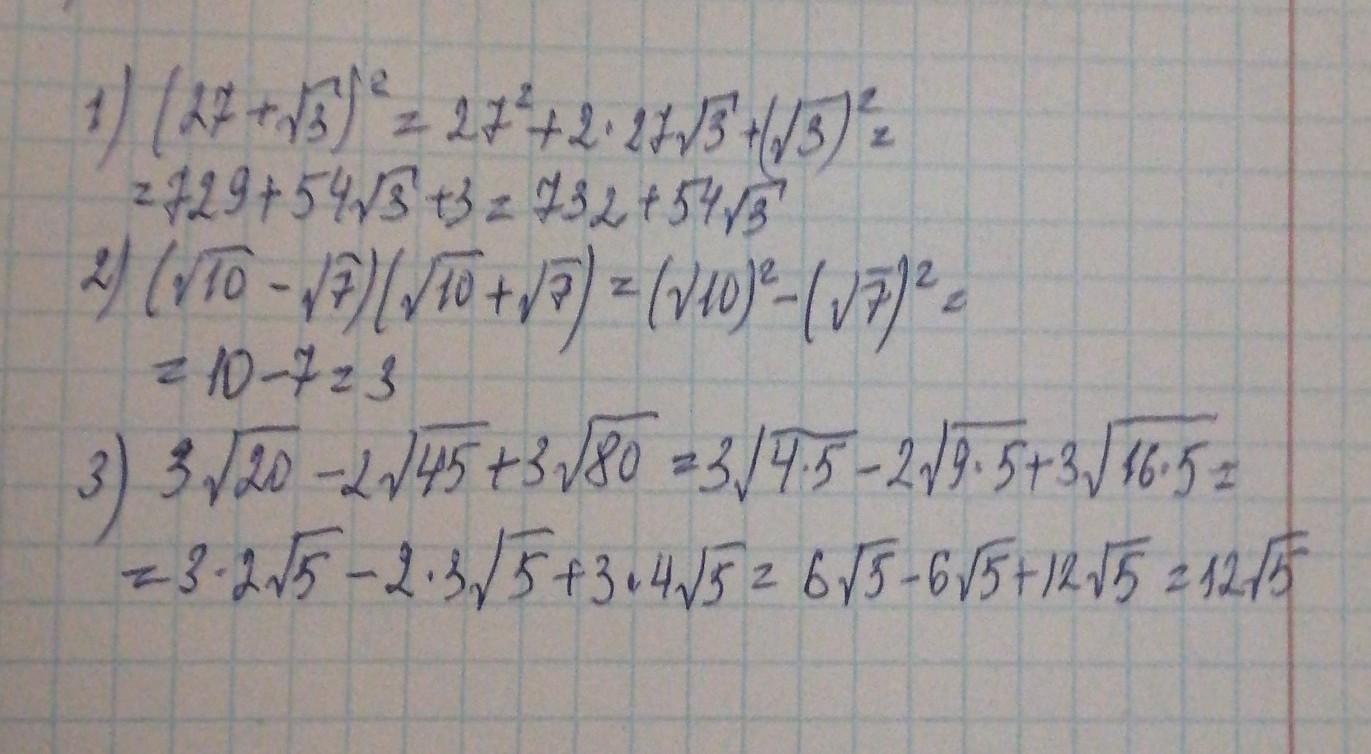 1) (27 + √3)² = 27² + 2·27√3 + (√3)² =
= 729 + 54√3 + 3 = 732 + 54√3
2) (√10 - √7)(√10 + √7) = (√10)² - (√7)² =
= 10 - 7 = 3
3) 3√20 - 2√45 + 3√80 = 3√4·5 - 2√9·5 + 3√16·5 =
= 3·2√5 - 2·3√5 + 3·4√5 = 6√5 - 6√5 + 12√5 = 12√5